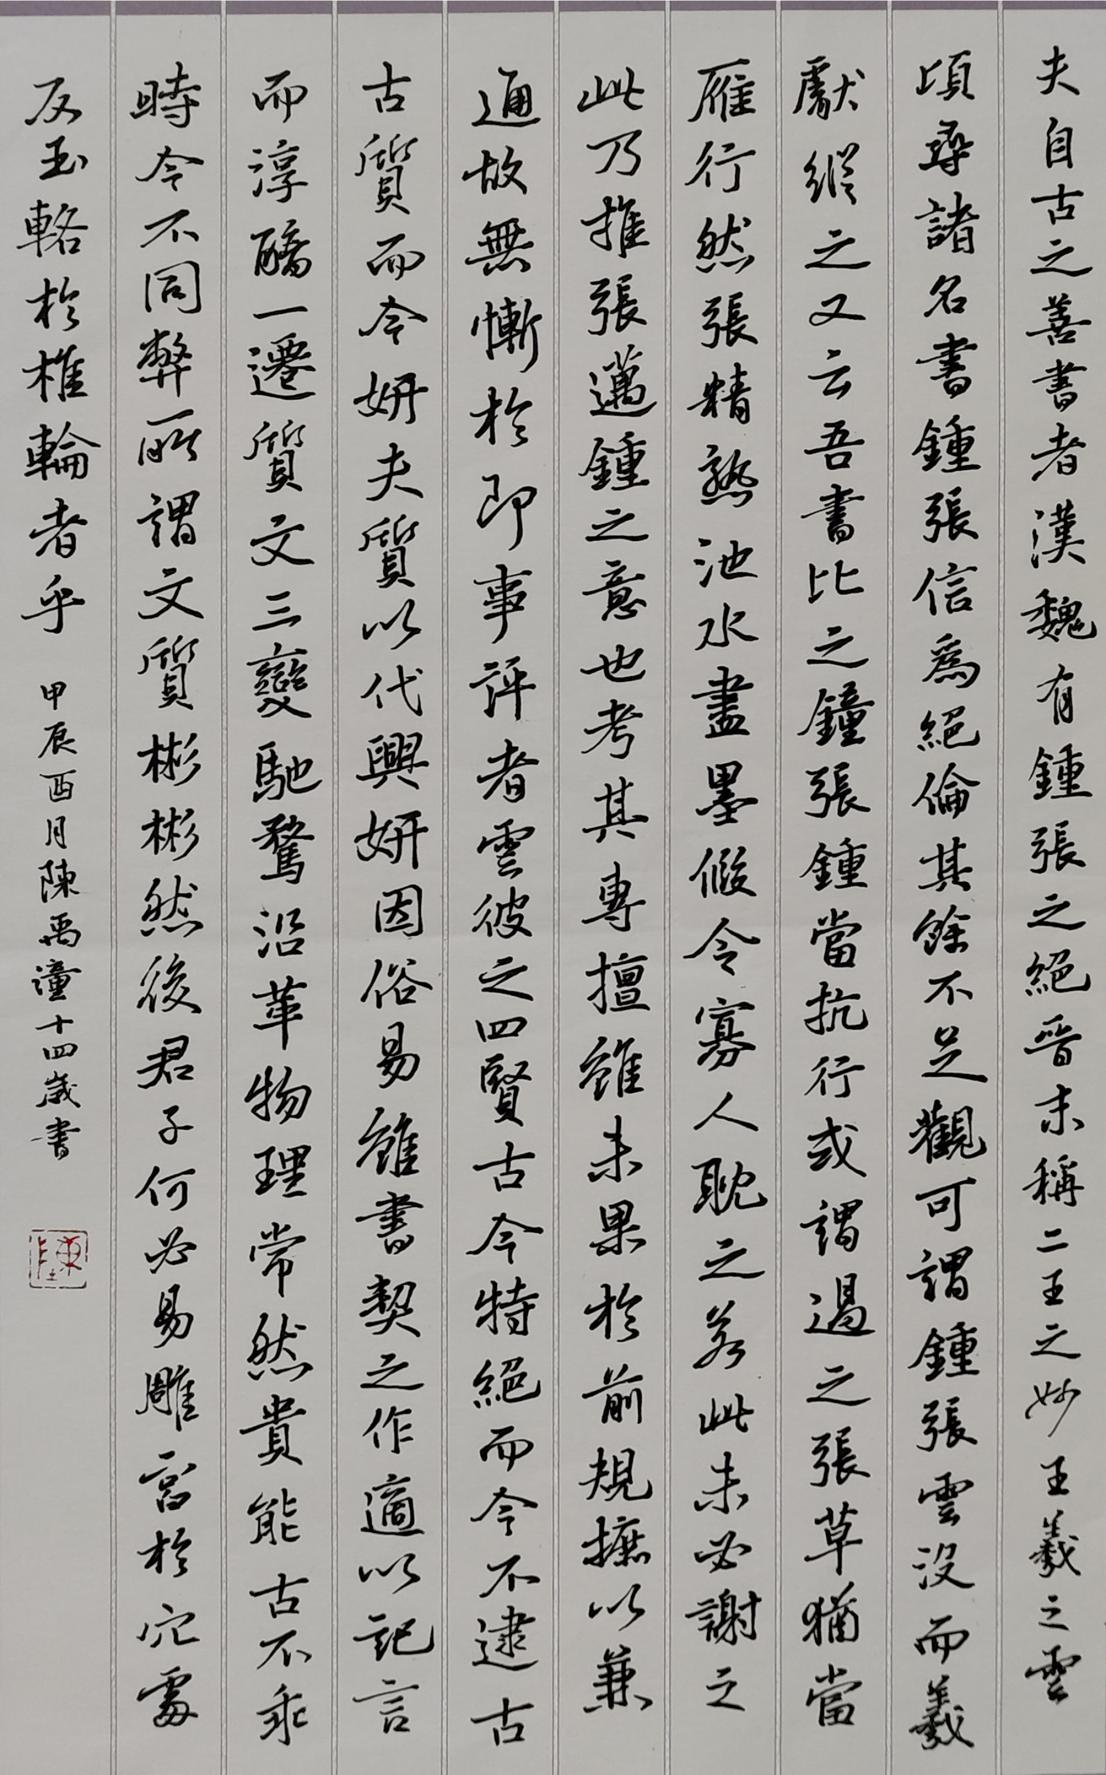 夫自古之善書者漢魏有鍾張之絕晉末稱二王之妙王羲之雲
頃尋諸名書鍾張信為絕倫其餘不足觀可謂鍾張雲沒而羲
獻繼之又云吾書比之鐘張鍾當抗行或謂過之張草猶當
雁行然張精熟池水盡墨假令寡人耽之若此未必謝之
此乃推張邁鍾之意也考其專擅雖未果於前規摭以兼
通故無慚於即事評者雲彼之四賢古今特絕而今不逮古
古質而今妍夫質以代興妍因俗易雖書契之作適以記言
而淳醨一遷質文三變馳騖沿革物理常然貴能古不乖
時今不同弊所謂文質彬彬然後君子何必易雕宮於穴處
反玉輅於椎輪者乎 甲辰酉月陳禹潼十四歲書
陳